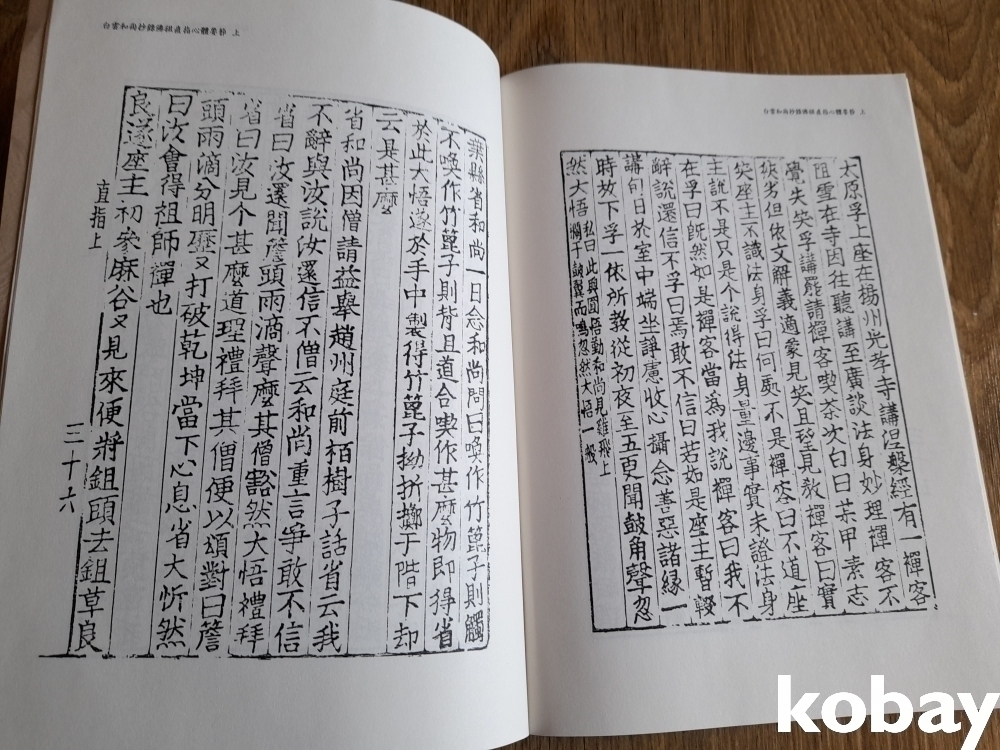 白雲和尚抄錄佛祖直指心體要節 上
太原孚上座在揚州光孝寺講涅槃經有一禪客
阻雪在寺因往聽講至廣談法身妙理禪客不
覺失笑孚講罷請禪客喫茶次白曰某甲素志
狹劣但依文解義適蒙見笑且望見教禪客曰實
笑座主不識法身孚曰何處不是禪客曰不道座
主說不是只是个說得法身量邊事實未證法身
在孚曰旣然如是禪客當為我說禪客曰我不
辭說還信不孚曰焉敢不信曰若如是座主暫輟
講旬日於室中端坐諍慮收心攝念善惡諸緣一
時放下孚一依所教從初夜至五更聞鼓角聲忽
然大悟
私曰此與圓悟勤和尚見雞飛上
欄干皷翼而鳴忽然大悟一般
白雲和尚抄錄佛祖直指心體要節 上
葉縣省和尚一日念和尚問曰喚作竹篦子則觸
不喚作竹篦子則背且道合喚作甚麽物即得省
於此大悟遂於手中製得竹篦子拗折擲于階下却
云是甚麽
省和尚因僧請益擧趙州庭前栢樹子話省云我
不辭與汝說汝還信不僧云和尚重言爭敢不信
省曰汝還聞簷頭雨滴聲麽其僧豁然大悟禮拜
省曰汝見个甚麽道理禮拜其僧便以頌對曰簷
頭雨滴分明歷又打破乾坤當下心息省大忻然
曰汝會得祖師禪也
良遂座主初參麻谷又見來便將鉏頭去鉏草良
直指上
三十六
kobay